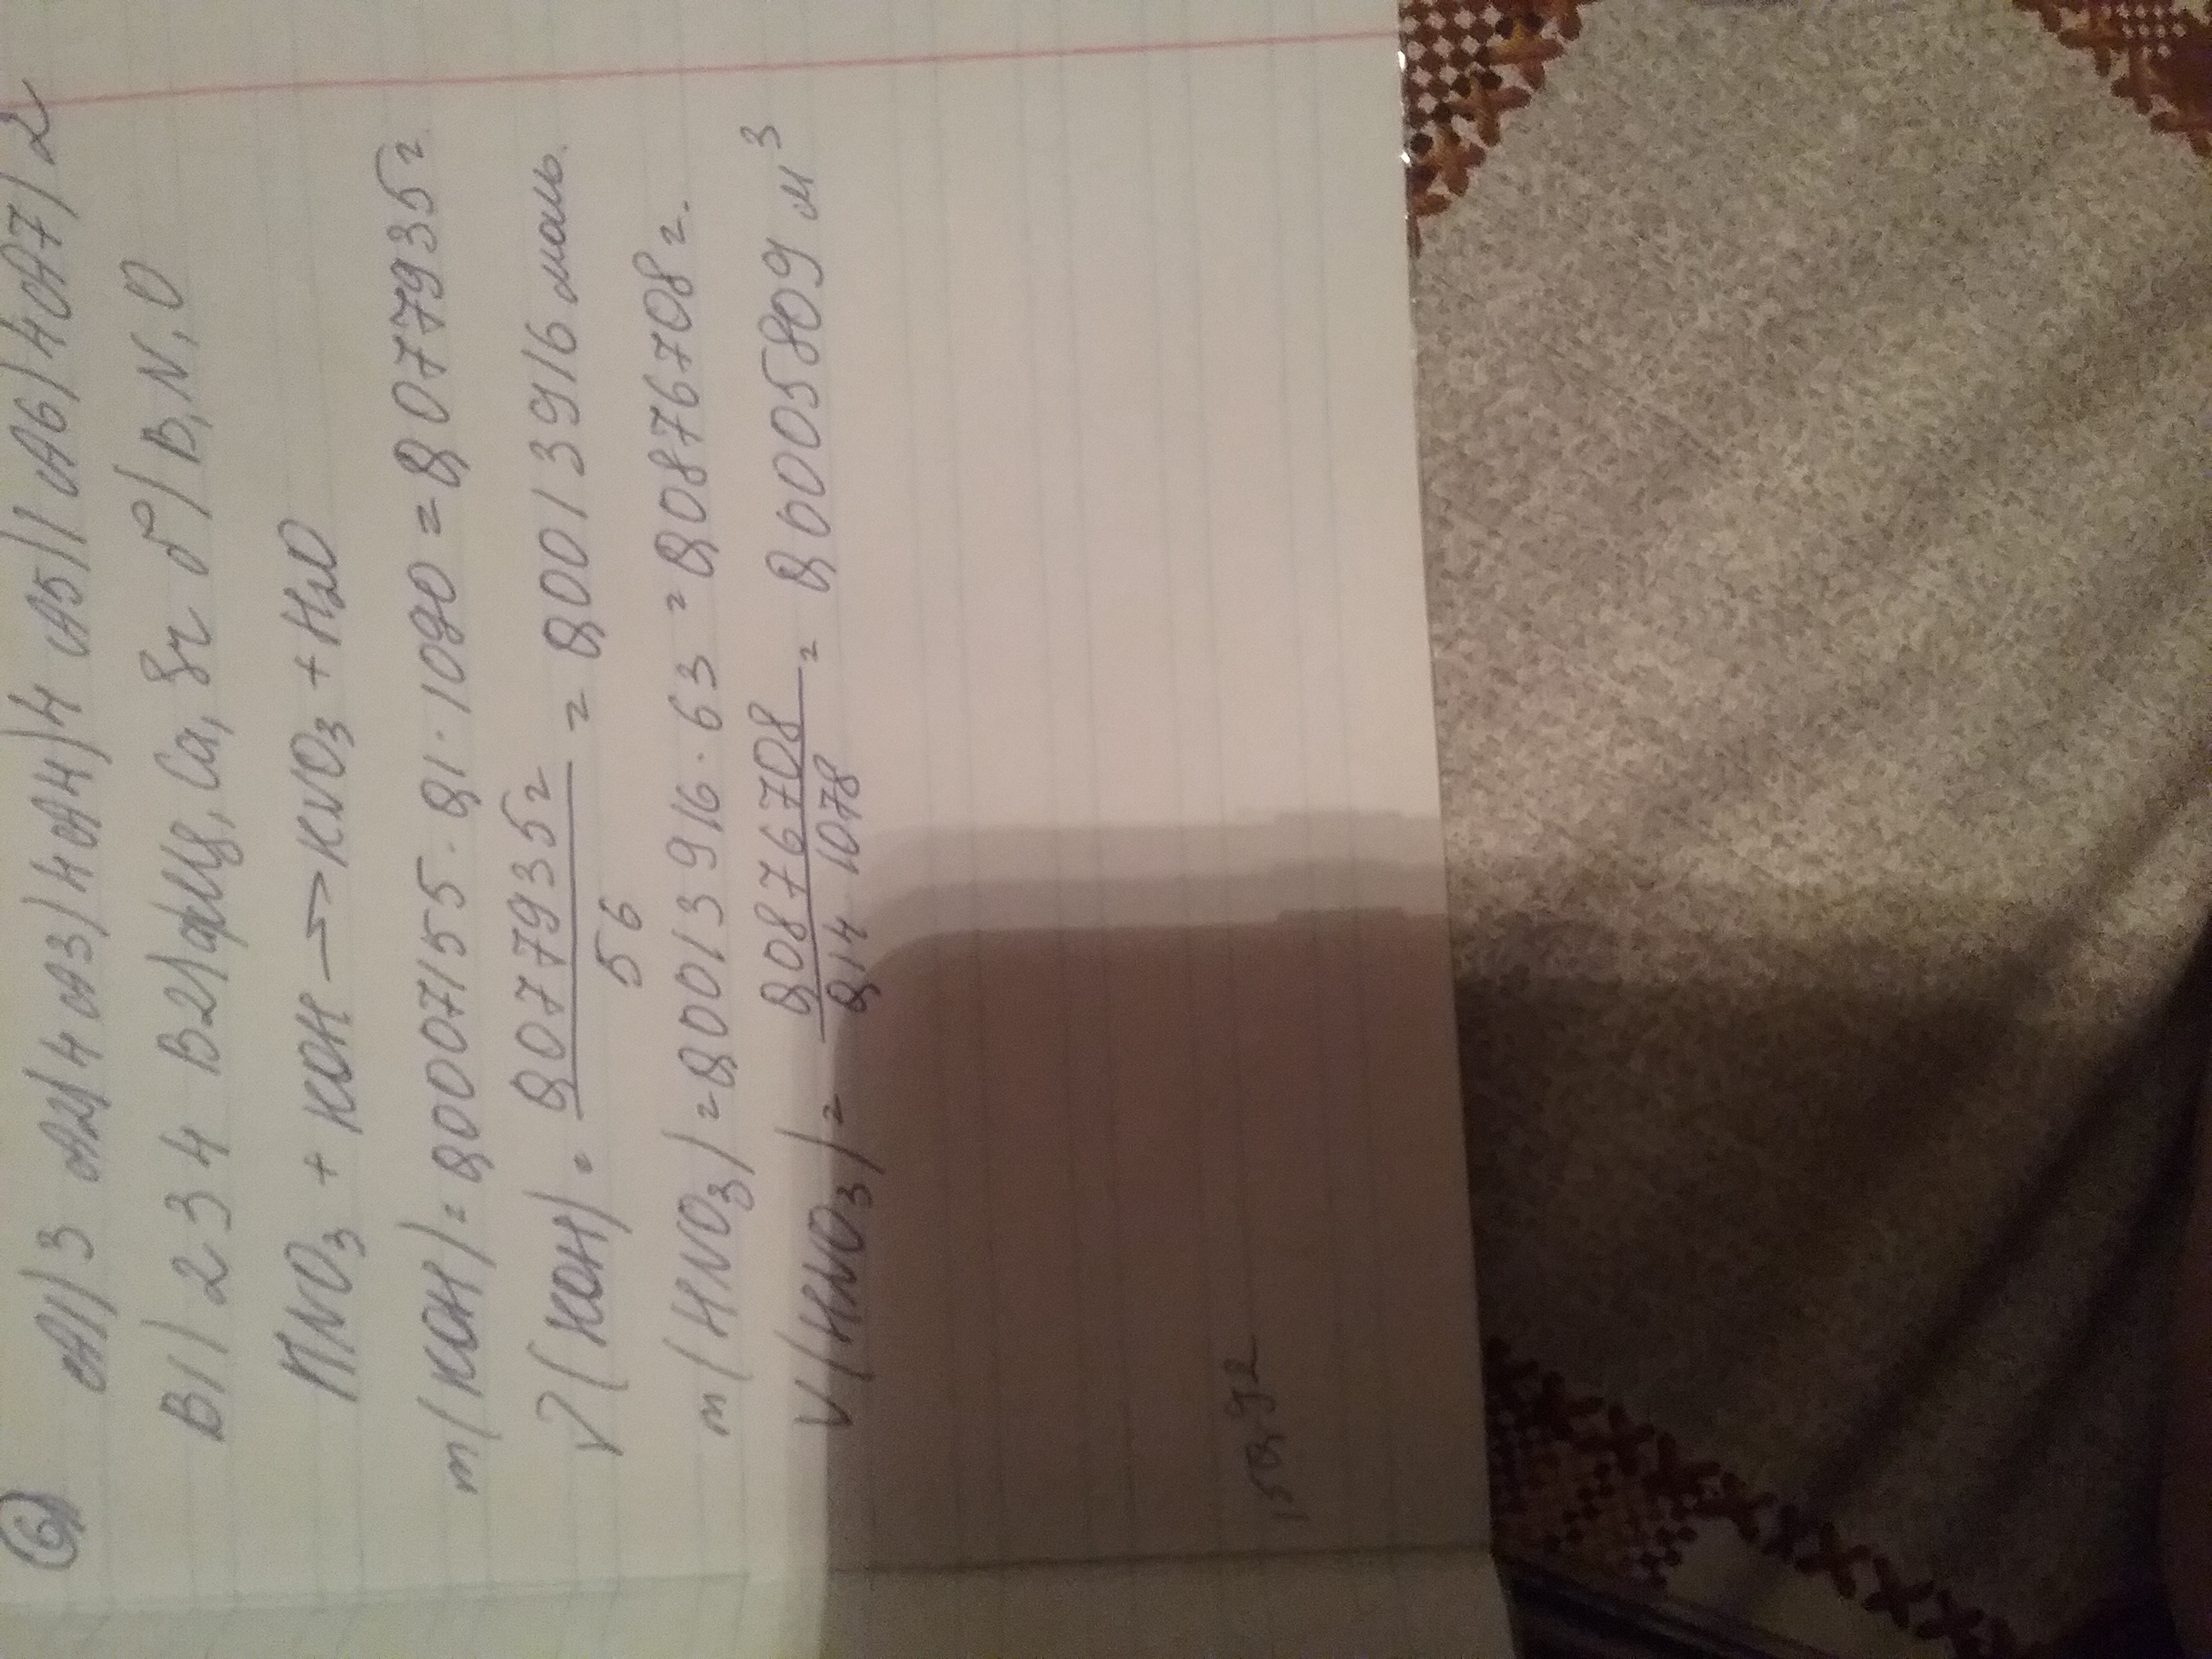 6
А1) 3 А2) 4 А3) 4 А4) 4 А5) 1 А6) 4 А7) 2
В1) 2 3 4 В2) а) Mg, Ca, Sr б) B, N, O
HNO3 + KOH → KNO3 + H2O
m(KOH) = 0,0007155 · 0,1 · 1090 = 0,077935 г
ν(KOH) = 0,077935 г / 56 = 0,0013916 моль.
m(HNO3) = 0,00139 916 · 63 = 0,0876708 г.
V(HNO3) = 0,0876708 / 0,14 1078 = 0,0005809 м3